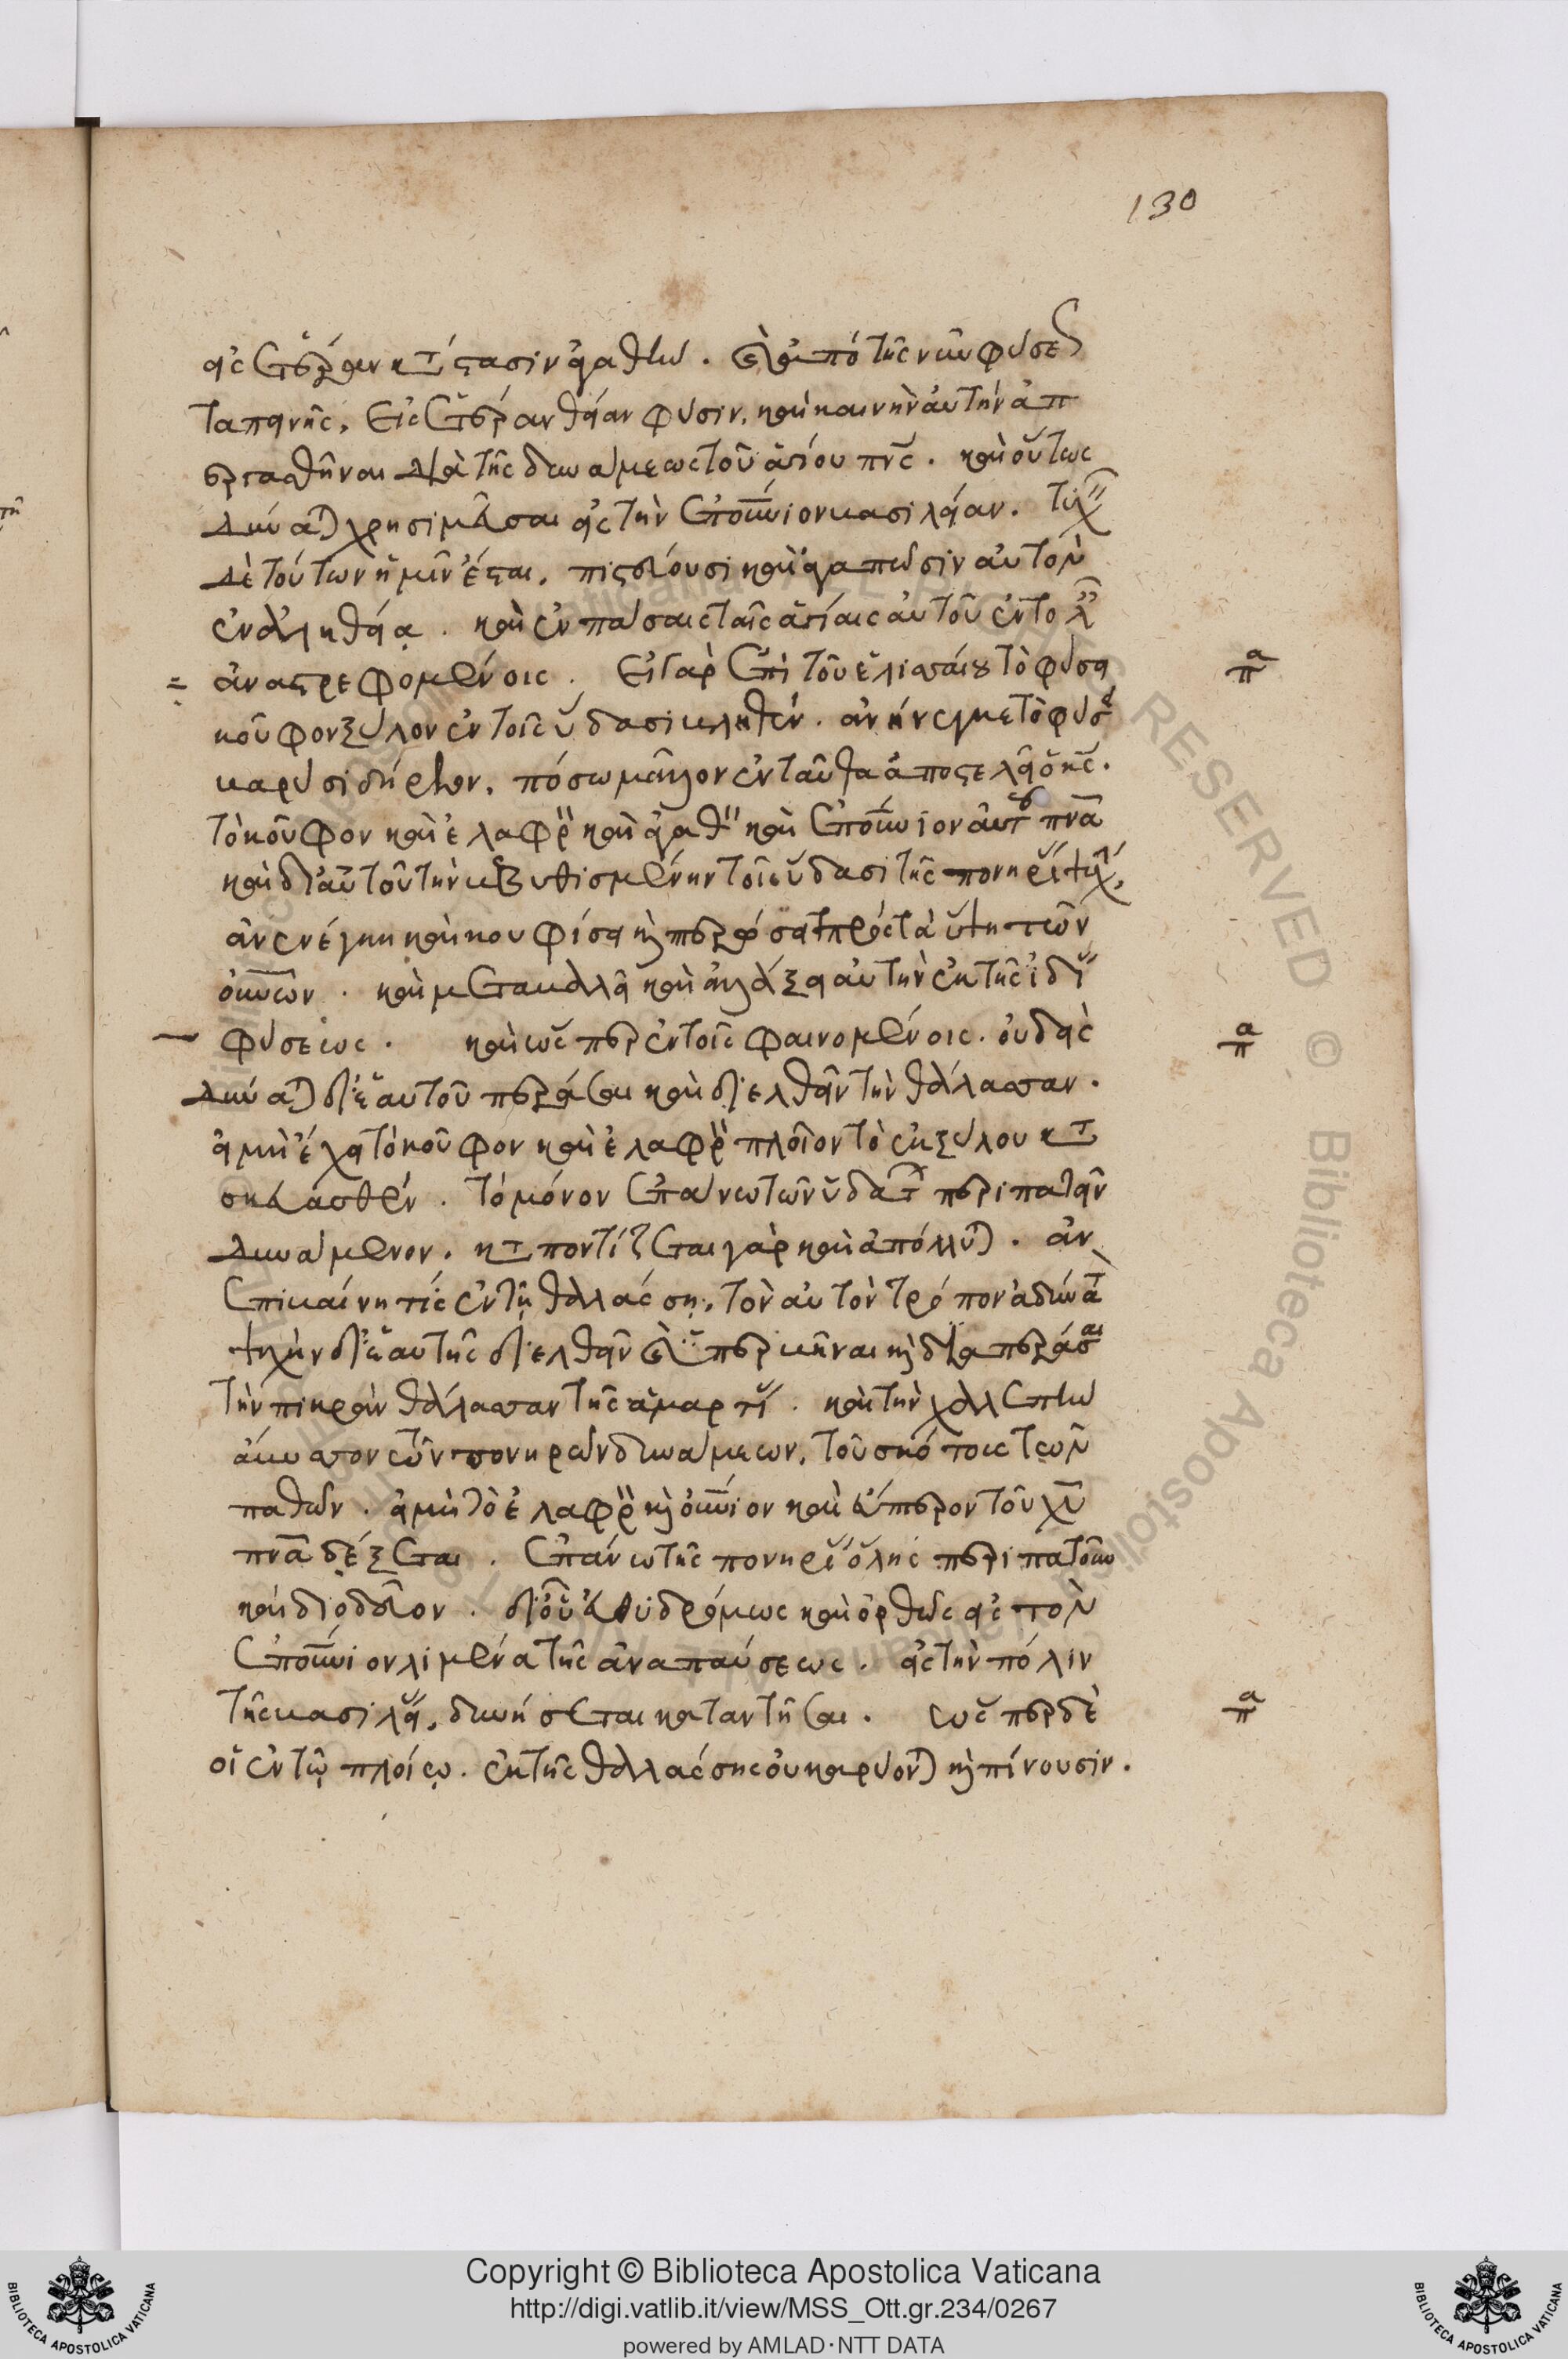 130
εἰς ἑτέραν κατάστασιν ἀγαθὴν. καὶ ἀπὸ τῆς νῦν φύσεως
ταπεινῆς, εἰς ἑτέραν θείαν φύσιν, καὶ καινὴν αὐτὴν ἀπ
εργασθῆναι διὰ τῆς δυνάμεως τοῦ ἁγίου πνς. καὶ οὕτως
δύναται χρησιμεῦσαι εἰς τὴν ἐπουνιον βασιλείαν. τυχεῖν
δὲ τούτων ἡμῖν ἔσται, πιστεύουσι καὶ ἀγαπῶσιν αὐτὸν
ἐν ἀληθείᾳ. καὶ ἐν πάσαις ταῖς ἁγίαις αὐτοῦ ἐντολαῖς
ἀναστρεφομένοις. Εἰ γὰρ ἐπὶ τοῦ ελισσαίου τὸ φύσει
κοῦφον ξύλον ἐν τοῖς ὕδασι βληθέν. ἀνήνεγκε τὸ φύσει
βαρὺ σιδήριον, πόσω μᾶλλον ἐνταῦθα ἀποστελεῖ ὁ κς.
τὸ κοῦφον καὶ ἐλαφρὸν καὶ ἀγαθὸν καὶ ἐπουνιον αὐτοῦ πνα
καὶ δι' αὐτοῦ τὴν βεβυθισμένην τοῖς ὕδασι τῆς πονηρίας ψυχὴν,
ἀνενέγκη καὶ κουφίσει καὶ πτερώσει πρὸς τὰ ὕψη τῶν
οὐνῶν. καὶ μεταβαλεῖ καὶ ἀλλάξει αὐτὴν ἐκ τῆς ἰδίας
φύσεως. καὶ ὥσπερ ἐν τοῖς φαινομένοις. οὐδεὶς
δύναται δι' ἑαυτοῦ περᾶσαι καὶ διελθεῖν τὴν θάλασσαν.
εἰ μὴ ἔχει τὸ κοῦφον καὶ ἐλαφρὸν πλοῖον τὸ ἐκ ξύλου κατα
σκευασθέν. τὸ μόνον ἐπάνω τῶν ὑδάτων περιπατεῖν
δυνάμενον. καταποντίζεται γὰρ καὶ ἀπόλλυται. ἀν
ἐπιβαίνη τίς ἐν τῇ θαλάσση, τὸν αὐτὸν τρόπον ἀδύνατον
ψυχὴν δι' ἑαυτῆς διελθεῖν καὶ ὑπερβῆναι καὶ διαπερᾶσαι
τὴν πικρὰν θάλασσαν τῆς ἁμαρτίας. καὶ τὴν χαλεπὴν
ἄβυσσον τῶν πονηρῶν δυνάμεων, τοῦ σκότους τῶν
παθῶν. εἰ μὴ τὸ ἐλαφρὸν καὶ οὐνιον καὶ εὔπτερον τοῦ χυ
πνα δέξεται. ἐπάνω τῆς πονηρίας ὅλης περιπατοῦν
καὶ διοδεῦον. δι' οὗ εὐθυδρόμως καὶ ὀρθῶς εἰς τὸν
ἐπουνιον λιμένα τῆς ἀναπαύσεως. εἰς τὴν πόλιν
τῆς βασιλείας, δυνήσεται καταντῆσαι. ὥσπερ δὲ
οἱ ἐν τῷ πλοίῳ. ἐκ τῆς θαλάσσης οὐκ ἀρύονται καὶ πίνουσιν.
Copyright © Biblioteca Apostolica Vaticana
http://digi.vatlib.it/view/MSS_Ott.gr.234/0267
powered by AMLAD·NTT DATA